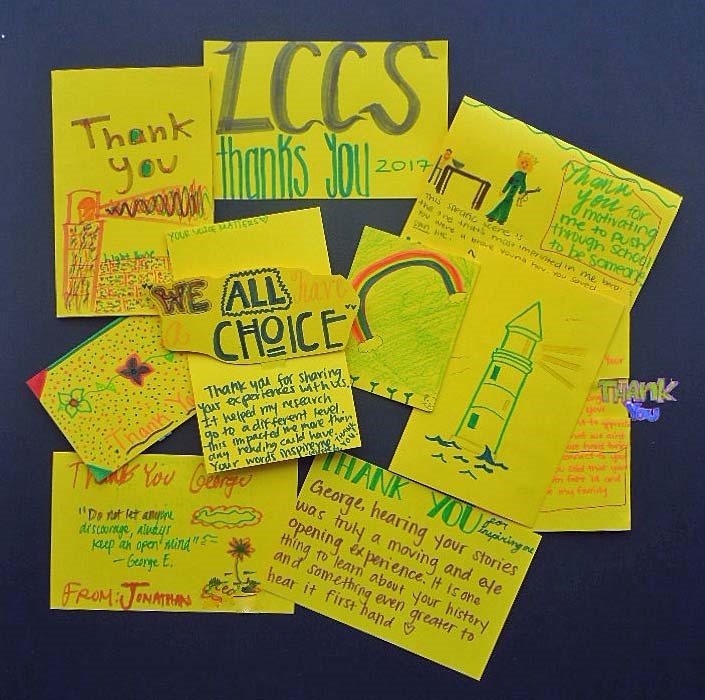 Thank
you
LCCS
thanks you 2017
thank
you for
motivating
me to push
through school
to be someone.
This specific scene is
the one that's most imprinted in me, because
YOUR VOICE MATTERS
WE ALL have
a CHOICE
Thank you for sharing
your experiences with us.
It helped my research
go to a different level.
This impacted me more than
any reading could have.
Your words inspire me
Thank You
THANK
You
Thank You George
"Do not let anyone
discourage, always
keep an open mind"
— George E.
FROM: JONATHAN
THANK YOU for
inspiring me
George, hearing your stories
was truly a moving and eye
opening experience. It is one
thing to learn about your history
and something even greater to
hear it first hand
your
my family